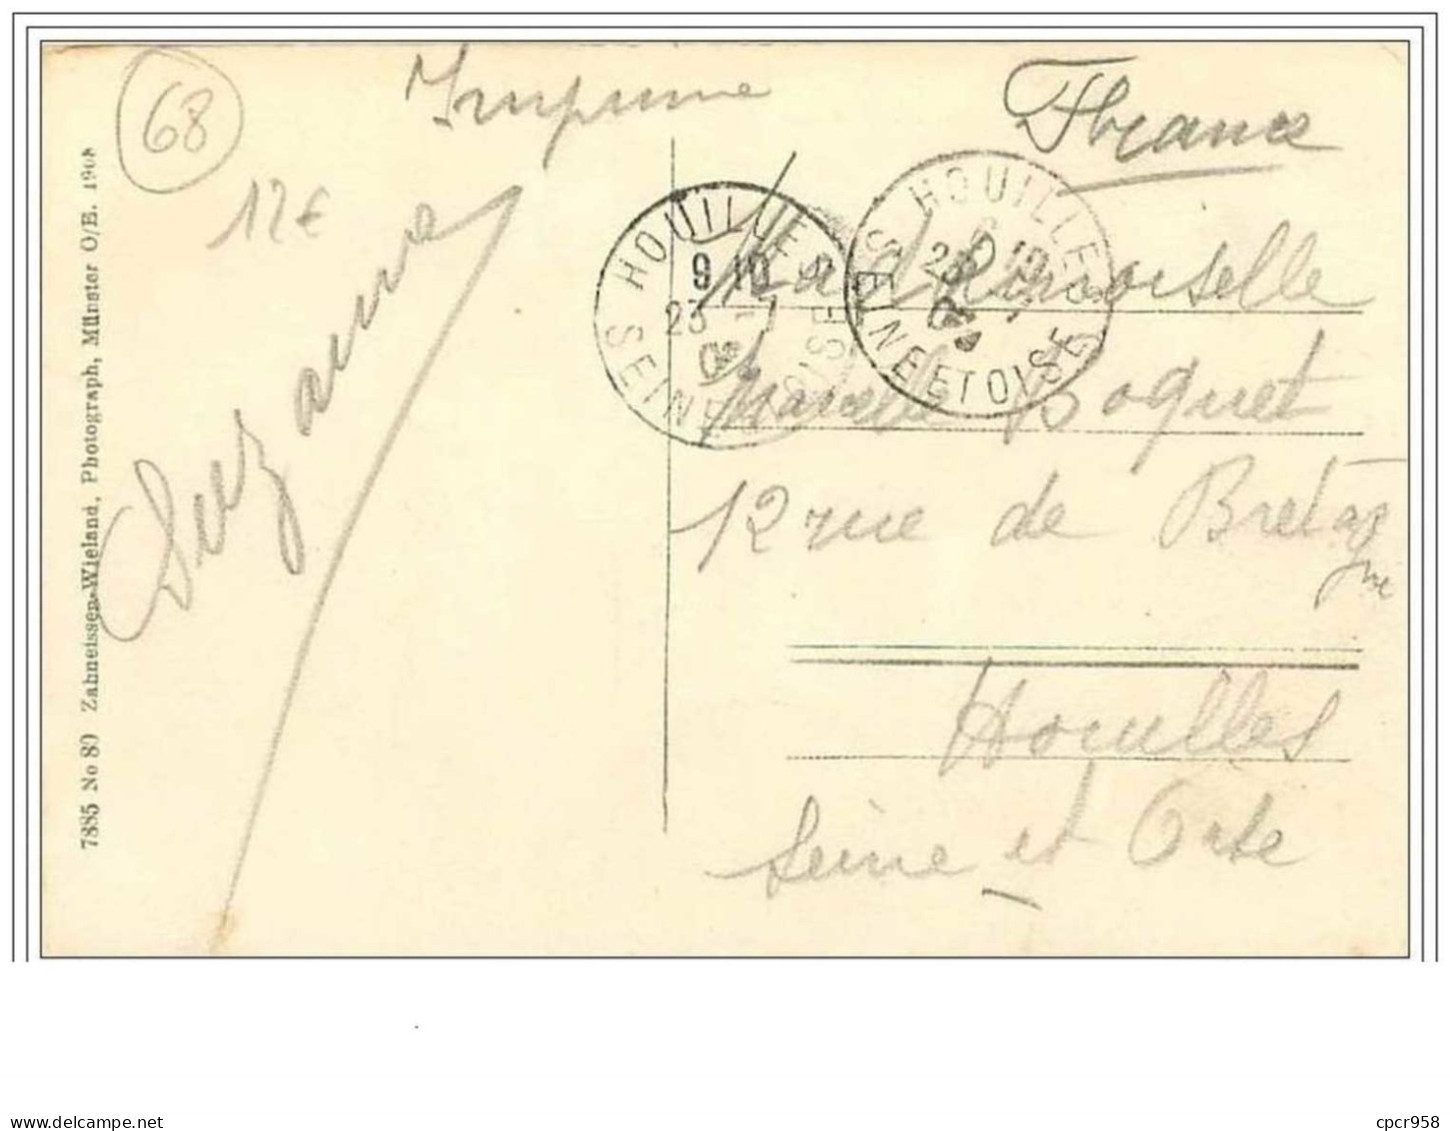 68
Imprimé
France
12€
Suzanne
HOUILLES
9 10
23
SEINE ET OISE
HOUILLES
23
SEINE ET OISE
Mademoiselle
Marcelle Boquet
12 rue de Bretagne
Houilles
Seine et Oise
7885 No 80 Zahneissen-Wieland, Photograph, Münster O/E. 1908
cpcr958